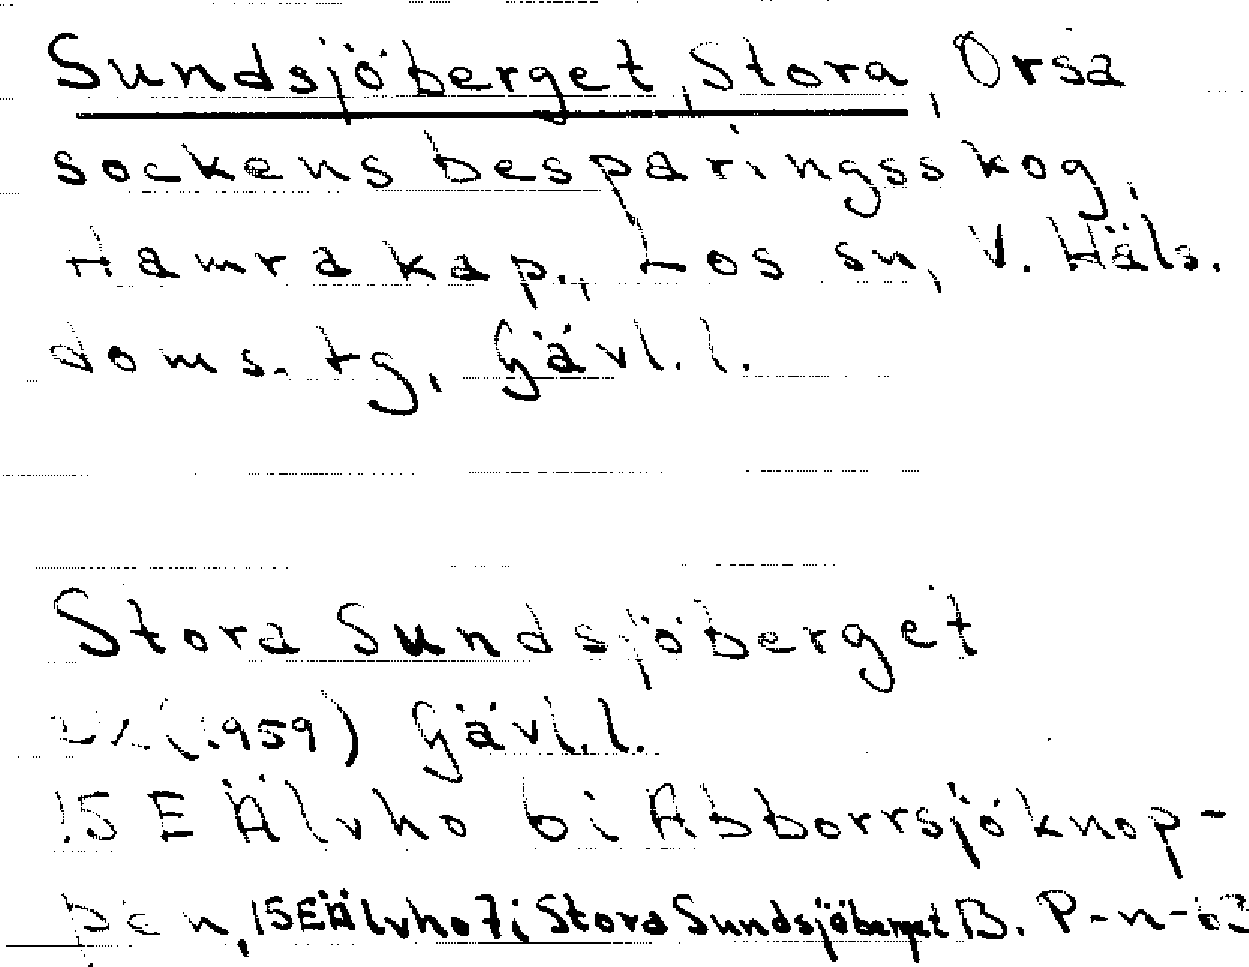 Sundsjöberget, Stora, Orsa
sockens besparingsskog,
Hamra kap., Los sn, V. Häls.
doms. tg, Gävl. l.
Stora Sundsjöberget
(1959) Gävl. l.
15 E Älvho 6i Abborrsjöknop-
pen, 15E Älvho 7i Stora Sundsjöberget B. P-n-63